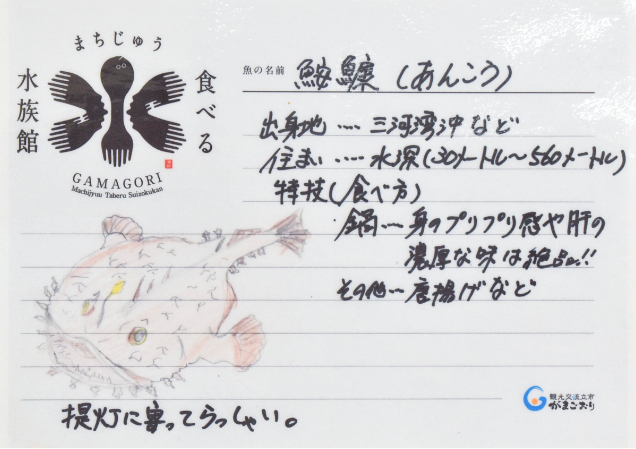 まちじゅう
食べる
水族館
GAMAGORI
Machijyuu Taberu Suizokukan
魚の名前 鮟鱇(あんこう)
出身地‥‥三河湾沖など
住まい‥‥水深(30メートル〜560メートル)
特技(食べ方)
鍋‥‥身のプリプリ感や肝の
濃厚な味は絶品!!
その他‥唐揚げなど
提灯に寄ってらっしゃい。
観光交流立市
がまごおり